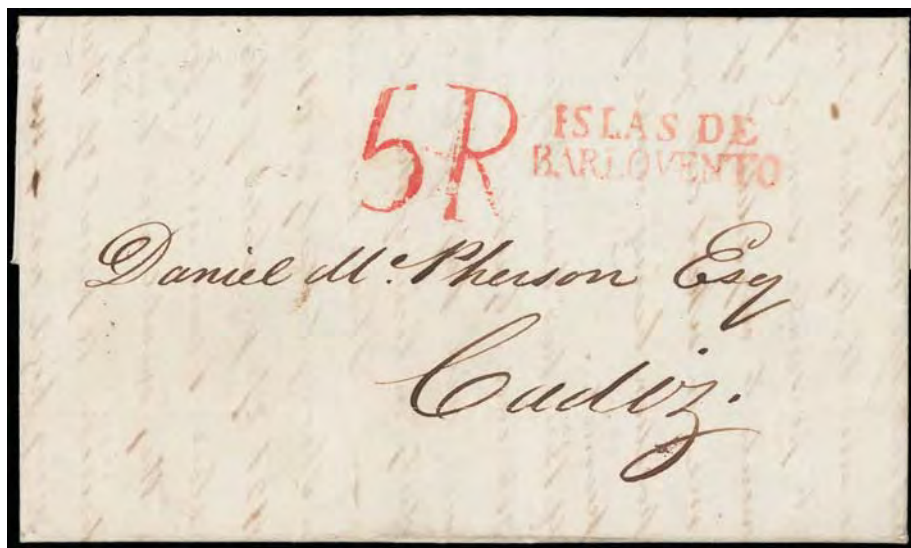 5R
ISLAS DE
BARLOVENTO
Daniel Mc. Pherson Esq
Cadiz.